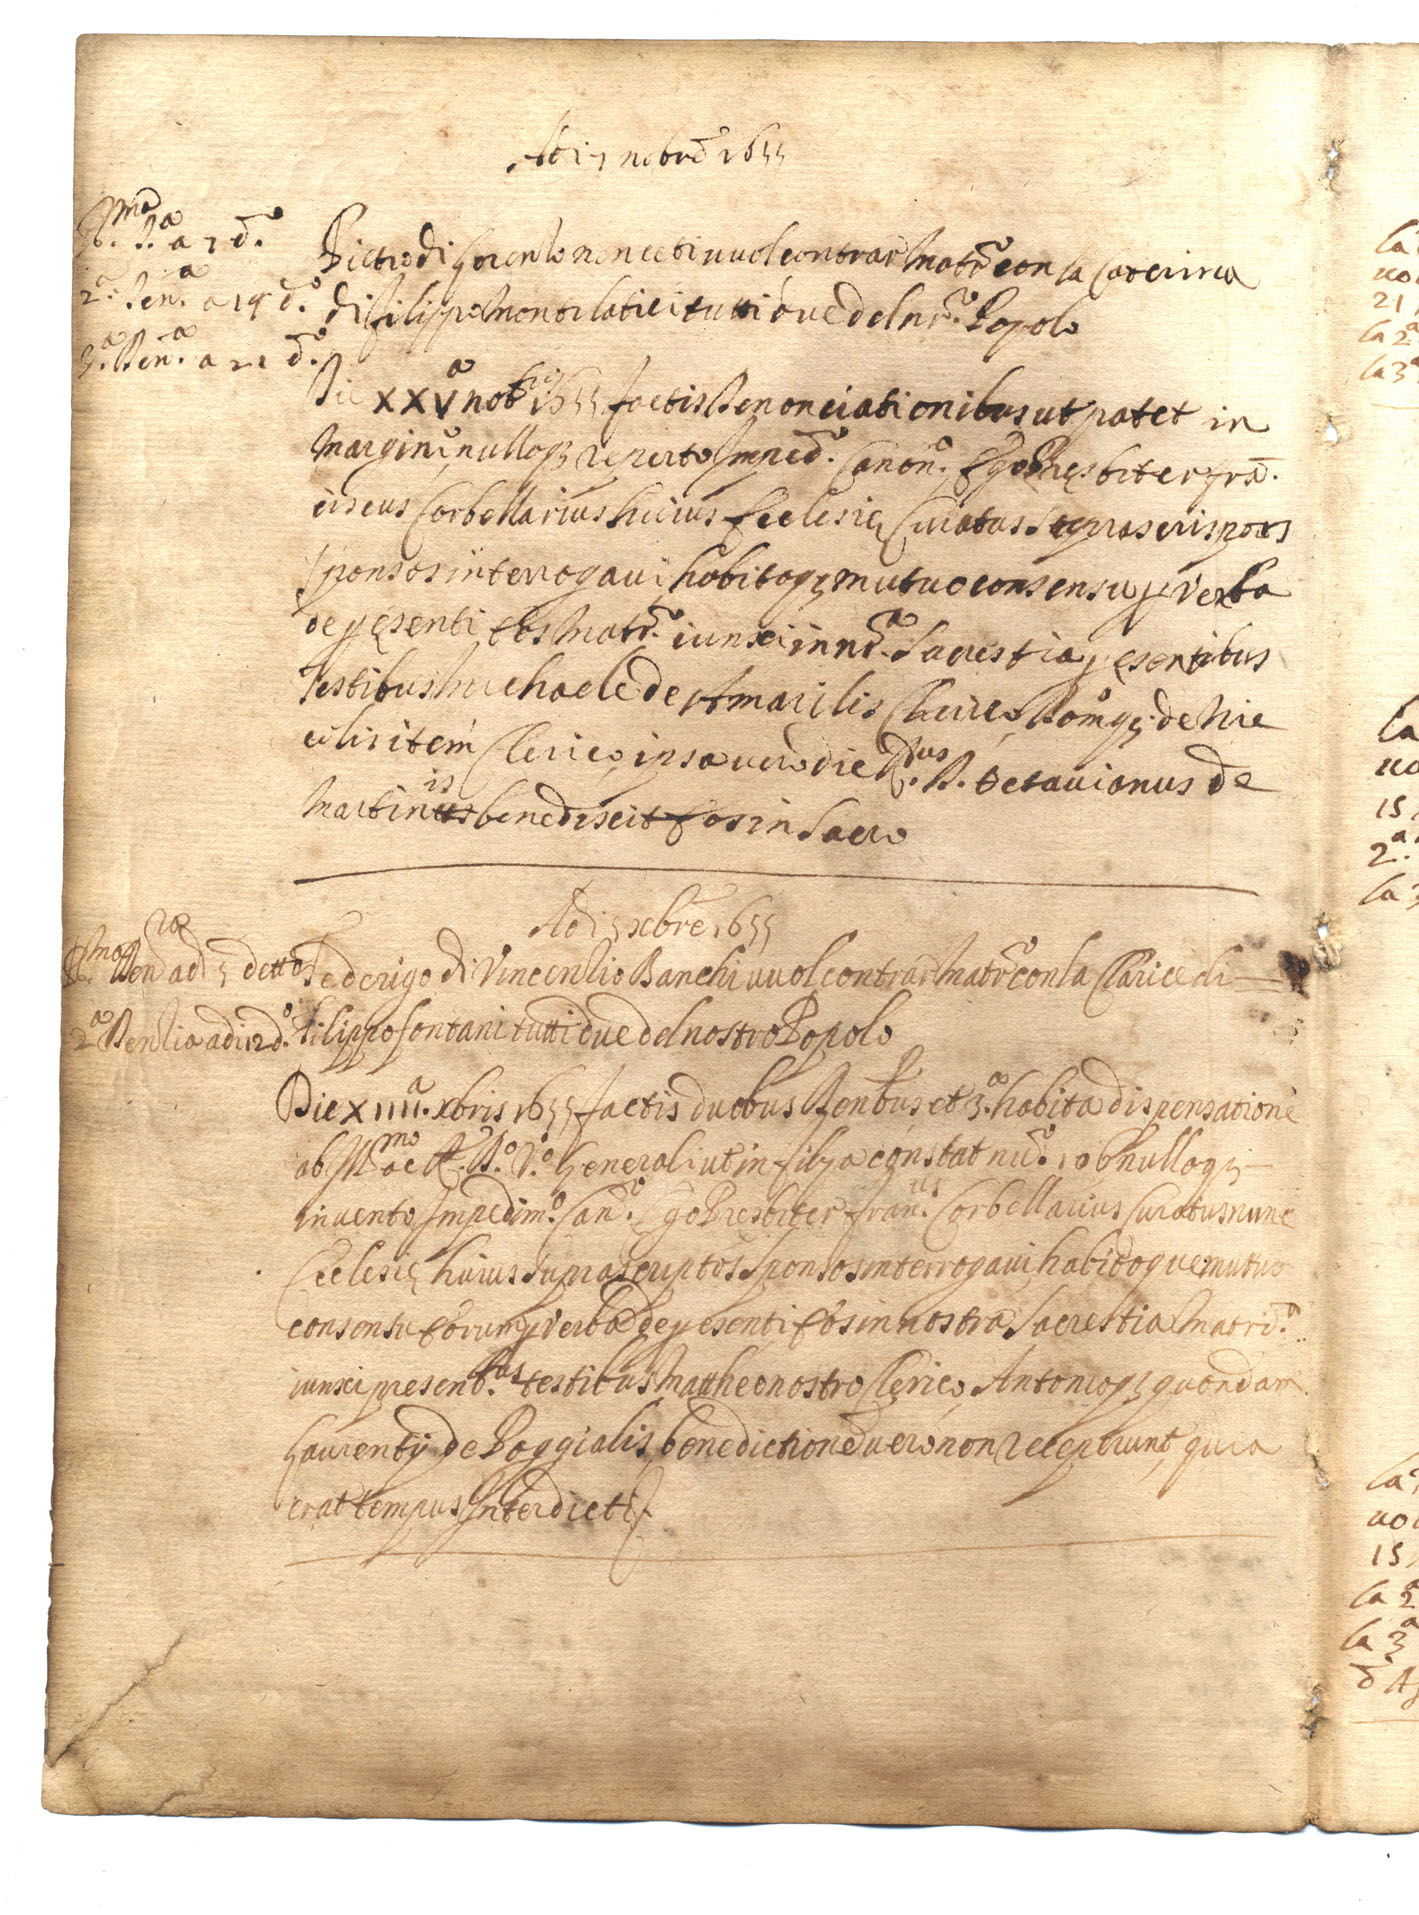 Adi 7 nobre 1655
P.ma D.a a 7 d.o
2.a Den.a a 14 d.o
3.a Den.a a 21 d.o
Pietro di Lorenzo uuol contrar Matr.o con la Caterina
di Filippo Monti tutti due del nr.o Popolo
Die XXV.a nobris 1655 factis Denonciationibus ut patet in
Margine, nulloq; reperto Imped.o Canon.o Ego Presbiter Fra.
ciscus Corbellarius huius Ecclesie Curatus supras
sponsos interrogaui, habitoq; mutuo consensu p verba
de presenti eos Matr.o iunxi in nr.a Sacrestia presentibus
Testibus Michaele de Amarilis Clerico, Dom.oq; de Nic
item Clerico, ipsa vero die R.dus D. Octauianus de
Martinis benedixit eos in Sacro
Adi 5 xbre 1655
P.ma Den.za ad 5 detto
2.a Denzia adi 12 d.o
Federigo di Vincenzio Banchi uuol contrar Matr.o con la Clarice di
Filippo Fontani tutti due del nostro Popolo
Die XIIII.a xbris 1655 factis duobus Denbus et 3.a habita dispensatione
ab Ill.mo ac R. D.o V.o Generali ut in filza constat nu.o 106 nulloq;
inuento Impedim.o Can.o Ego Presbiter Fran.cus Corbellarius Curatus nunc
Ecclesie huius suprascriptos Sponsos interrogaui, habitoque mutuo
consensu eorum p verba de presenti eos in nostra Sacrestia Matri.o
iunxi presentbus testibus Mattheo nostro Clerico, Antonioq; quondam
Laurentij de Poggialis, benedictione vero non receperunt, quia
erat tempus Interdicti